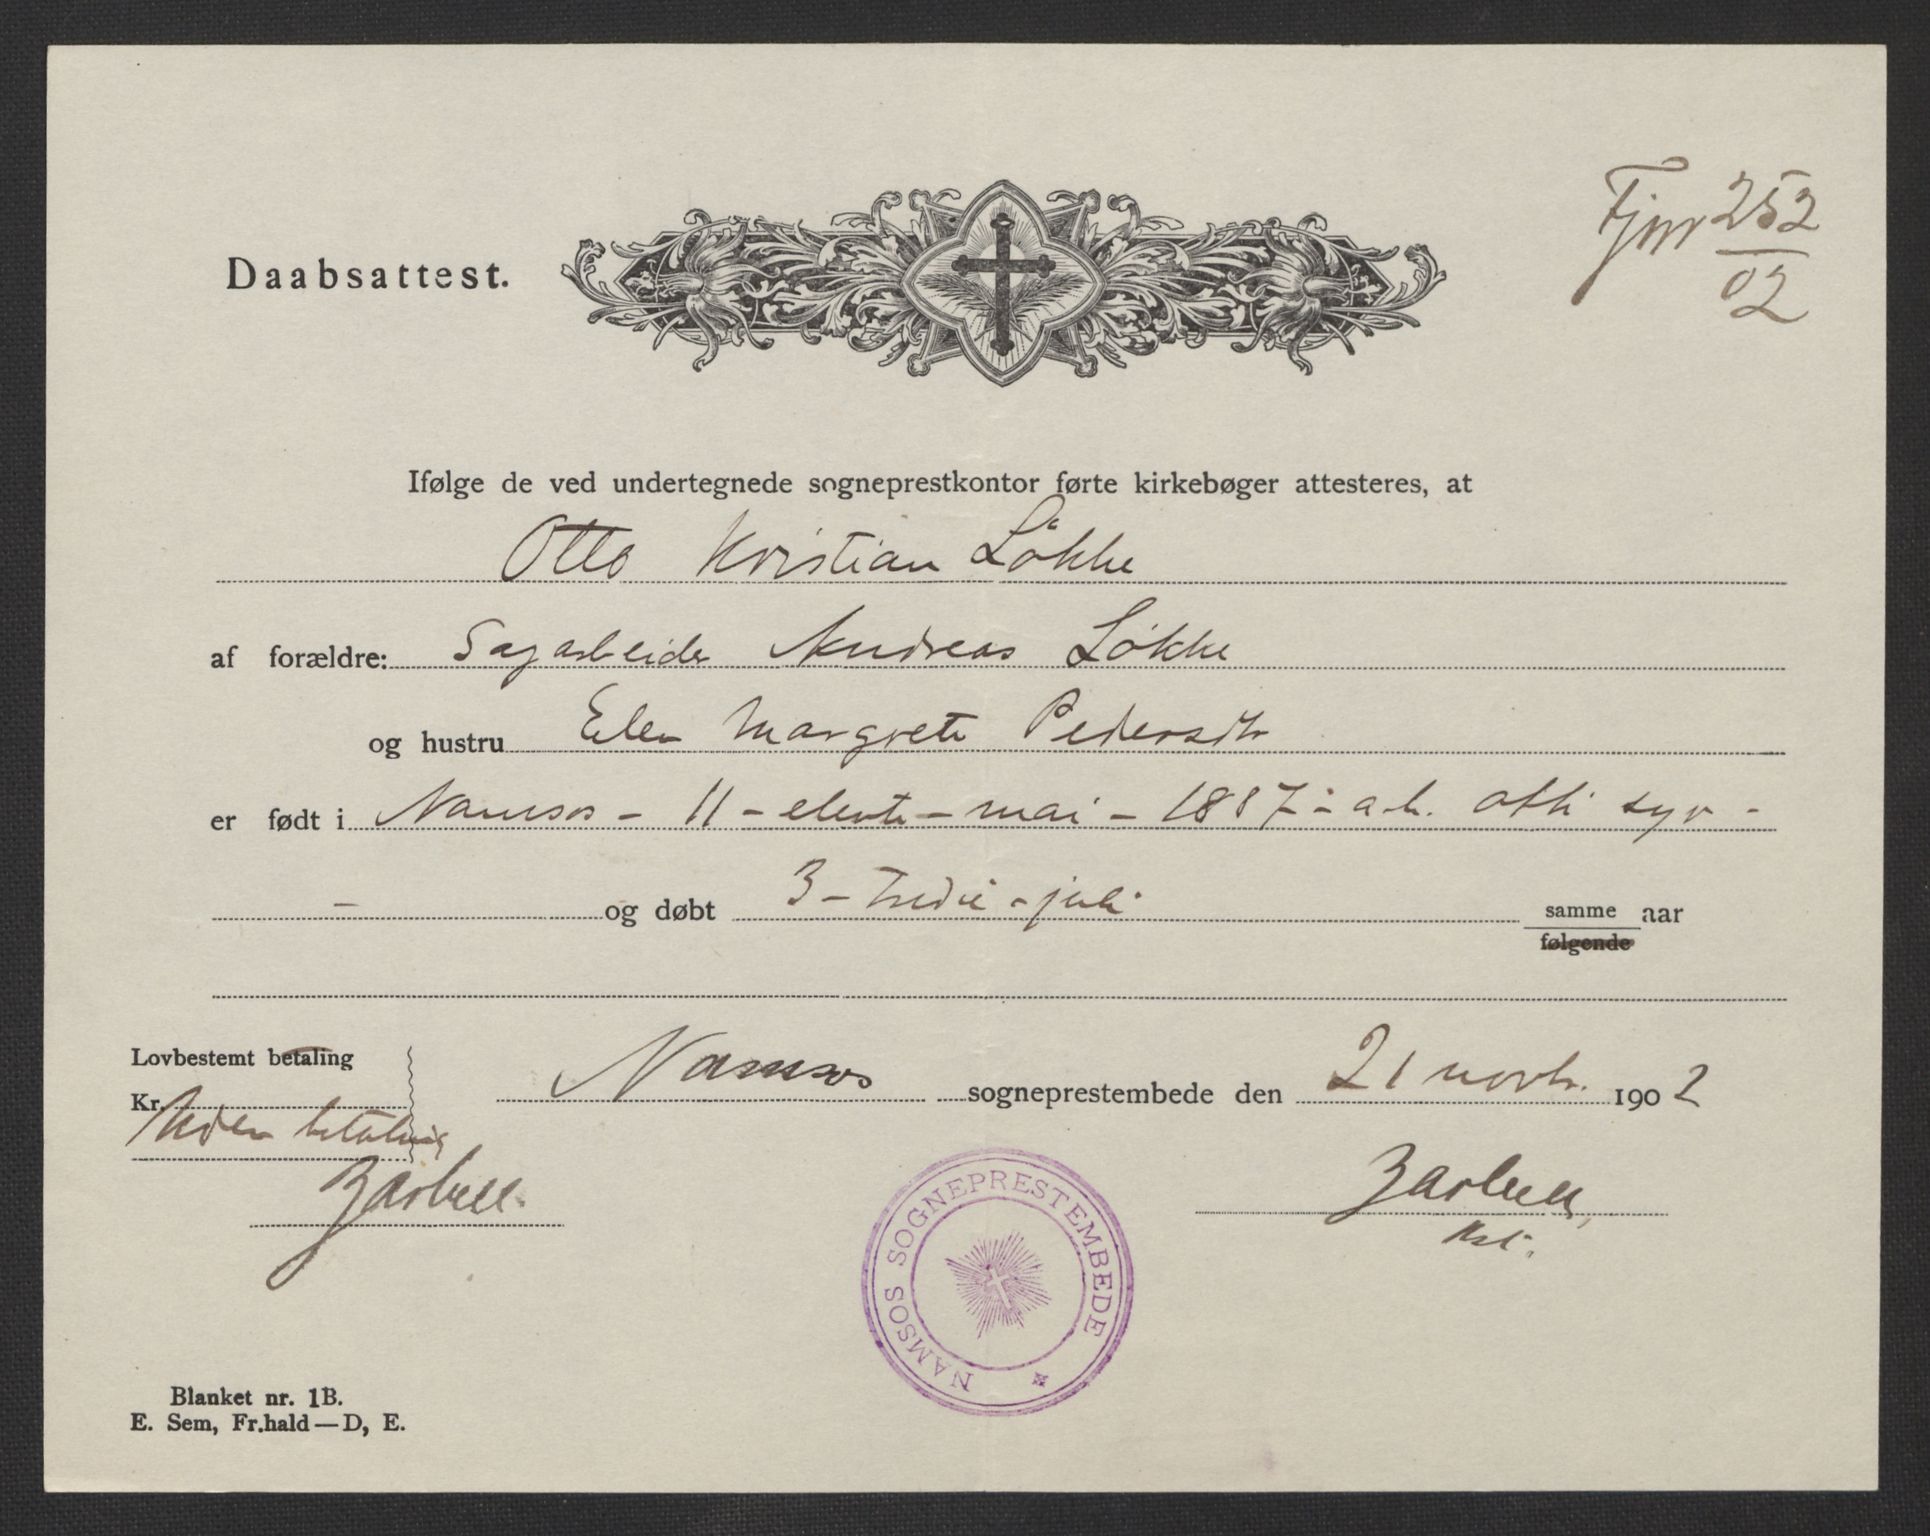 Fj nr 252
02
Daabsattest.
Ifølge de ved undertegnede sogneprestkontor førte kirkebøger attesteres, at
Otto Kristian Løkke
af forældre: Sagarbeider Andreas Løkke
og hustru Elen Margrete Pedersdtr
er født i Namsos - 11 - elevte - mai - 1887 - a.h. otti syv -
- og døbt 3 - tredie - juli samme aar
følgende
Lovbestemt betaling
Kr.
Uden betaling
Namsos sogneprestembede den 21 novbr. 1902
NAMSOS SOGNEPRESTEMBEDE
Blanket nr. 1B.
E. Sem, Fr.hald — D, E.